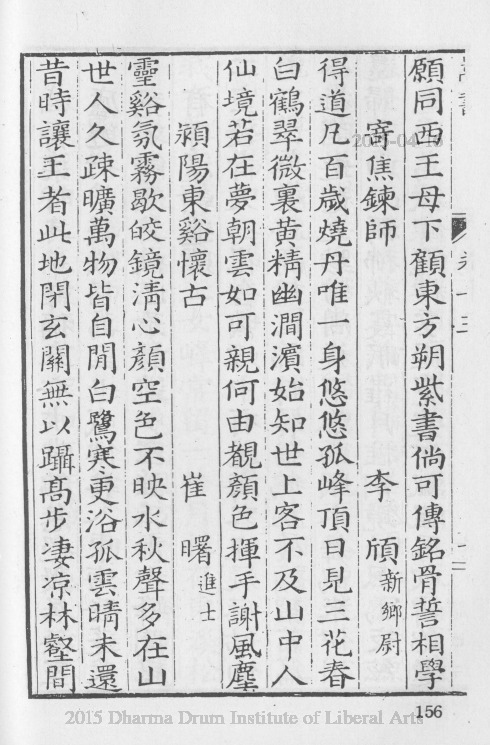 願同西王母下顧東方朔紫書倘可傳銘骨誓相學
寄焦鍊師 李頎新鄉尉
得道凡百歲燒丹唯一身悠悠孤峰頂日見三花春
白鶴翠微裏黃精幽澗濱始知世上客不及山中人
仙境若在夢朝雲如可親何由覩顏色揮手謝風塵
潁陽東谿懷古 崔曙進士
靈谿氛霧歇皎鏡淸心顏空色不映水秋聲多在山
世人久疎曠萬物皆自閒白鷺寒更浴孤雲晴未還
昔時讓王者此地閉玄關無以躡高步凄凉林壑間
156
2015 Dharma Drum Institute of Liberal Arts